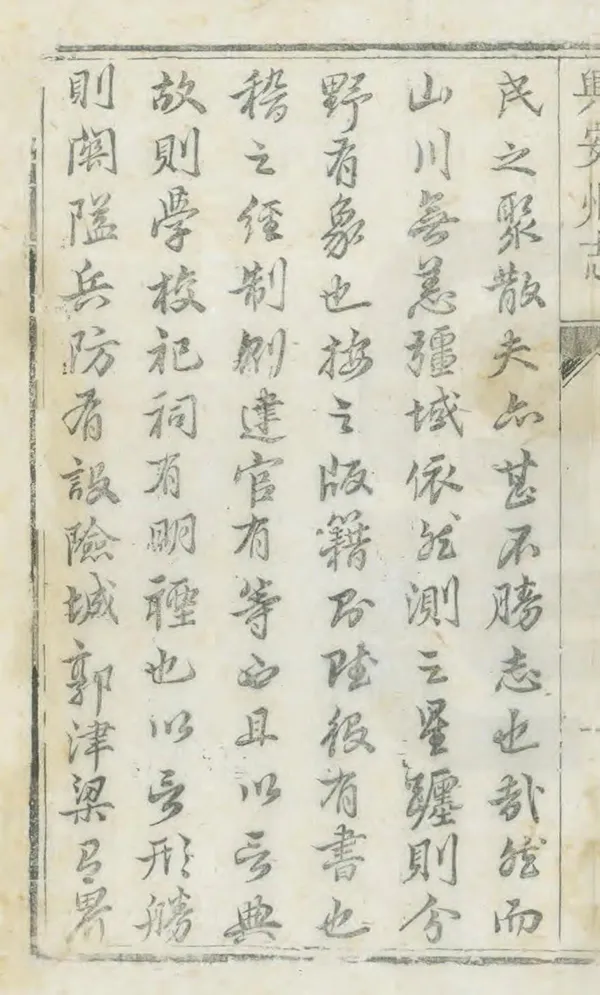 興安州志
民之聚散夫亦甚不勝志也哉然而
山川無恙疆域依然測之星躔則分
野有象也按之版籍則賦役有書也
稽之經制則建官有等也且以言典
故則學校祀祠有明禋也以言形勝
則關隘兵防有設險城郭津梁有界